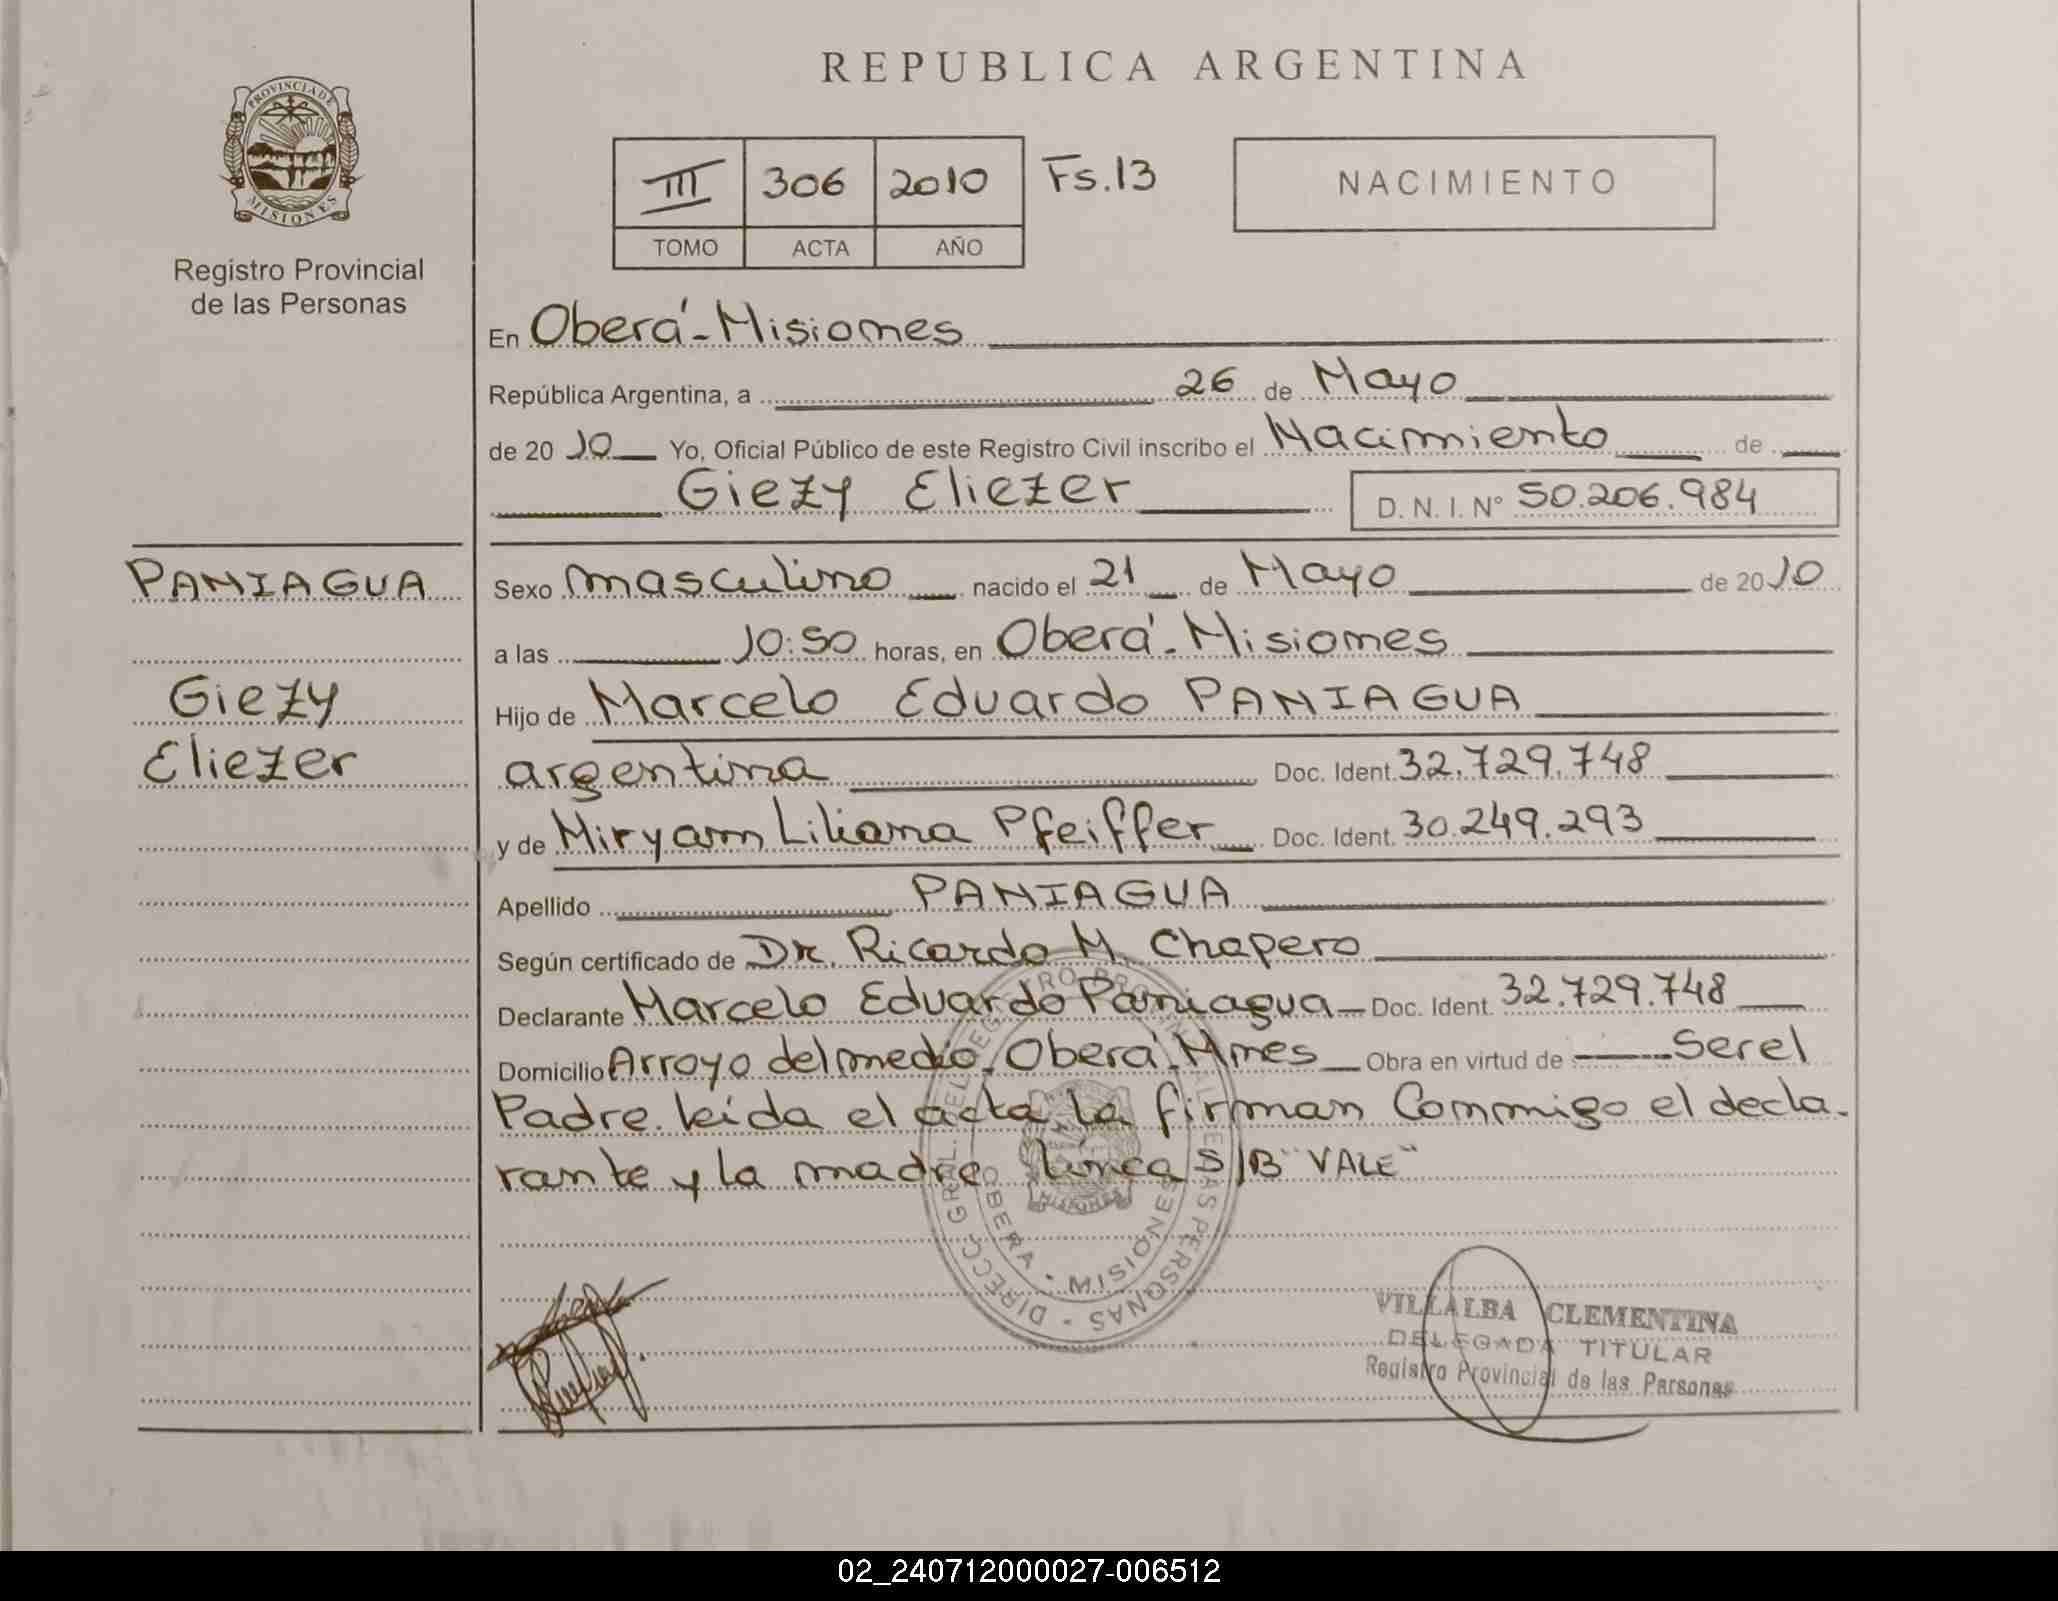 REPUBLICA ARGENTINA
PROVINCIA DE
MISIONES
Registro Provincial
de las Personas
III 306 2010 Fs.13
TOMO ACTA AÑO
NACIMIENTO
En Oberá-Misiones
República Argentina, a 26 de Mayo
de 2010 Yo, Oficial Público de este Registro Civil inscribo el Nacimiento de
Giezy Eliezer D. N. I. N° 50.206.984
PANIAGUA
Giezy
Eliezer
Sexo masculino nacido el 21 de Mayo de 2010
a las 10:50 horas, en Oberá-Misiones
Hijo de Marcelo Eduardo PANIAGUA
argentina Doc. Ident. 32.729.748
y de Miryam Liliana Pfeiffer Doc. Ident. 30.249.293
Apellido PANIAGUA
Según certificado de Dr. Ricardo M. Chapero
Declarante Marcelo Eduardo Paniagua Doc. Ident. 32.729.748
Domicilio Arroyo del medio. Oberá. Mnes Obra en virtud de Ser el
Padre. leída el acta la firman Conmigo el decla-
rante y la madre línea S/B "VALE"
OBERA - MISIONES
VILLALBA CLEMENTINA
DELEGADA TITULAR
Registro Provincial de las Personas
02_240712000027-006512